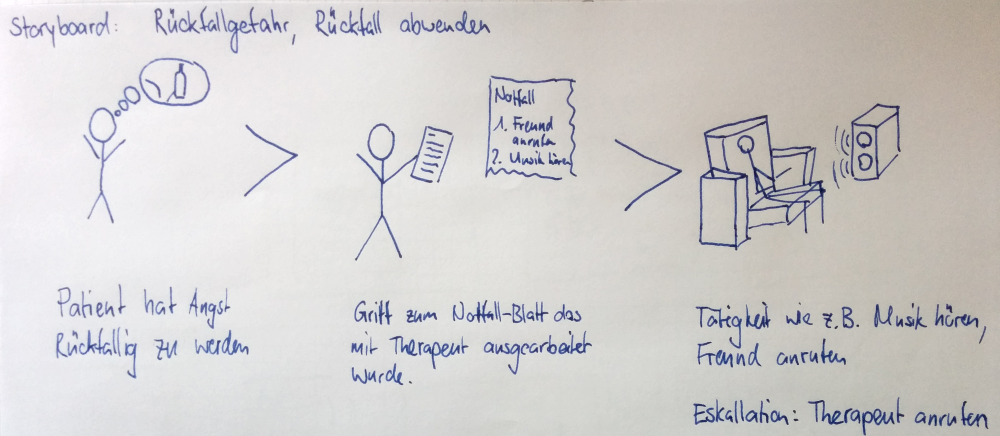 Storyboard: Rückfallgefahr, Rückfall abwenden
Notfall
1. Freund
anrufen
2. Musik hören
Patient hat Angst
Rückfällig zu werden
Griff zum Notfall-Blatt das
mit Therapeut ausgearbeitet
wurde.
Tätigkeit wie z.B. Musik hören,
Freund anrufen
Eskallation: Therapeut anrufen